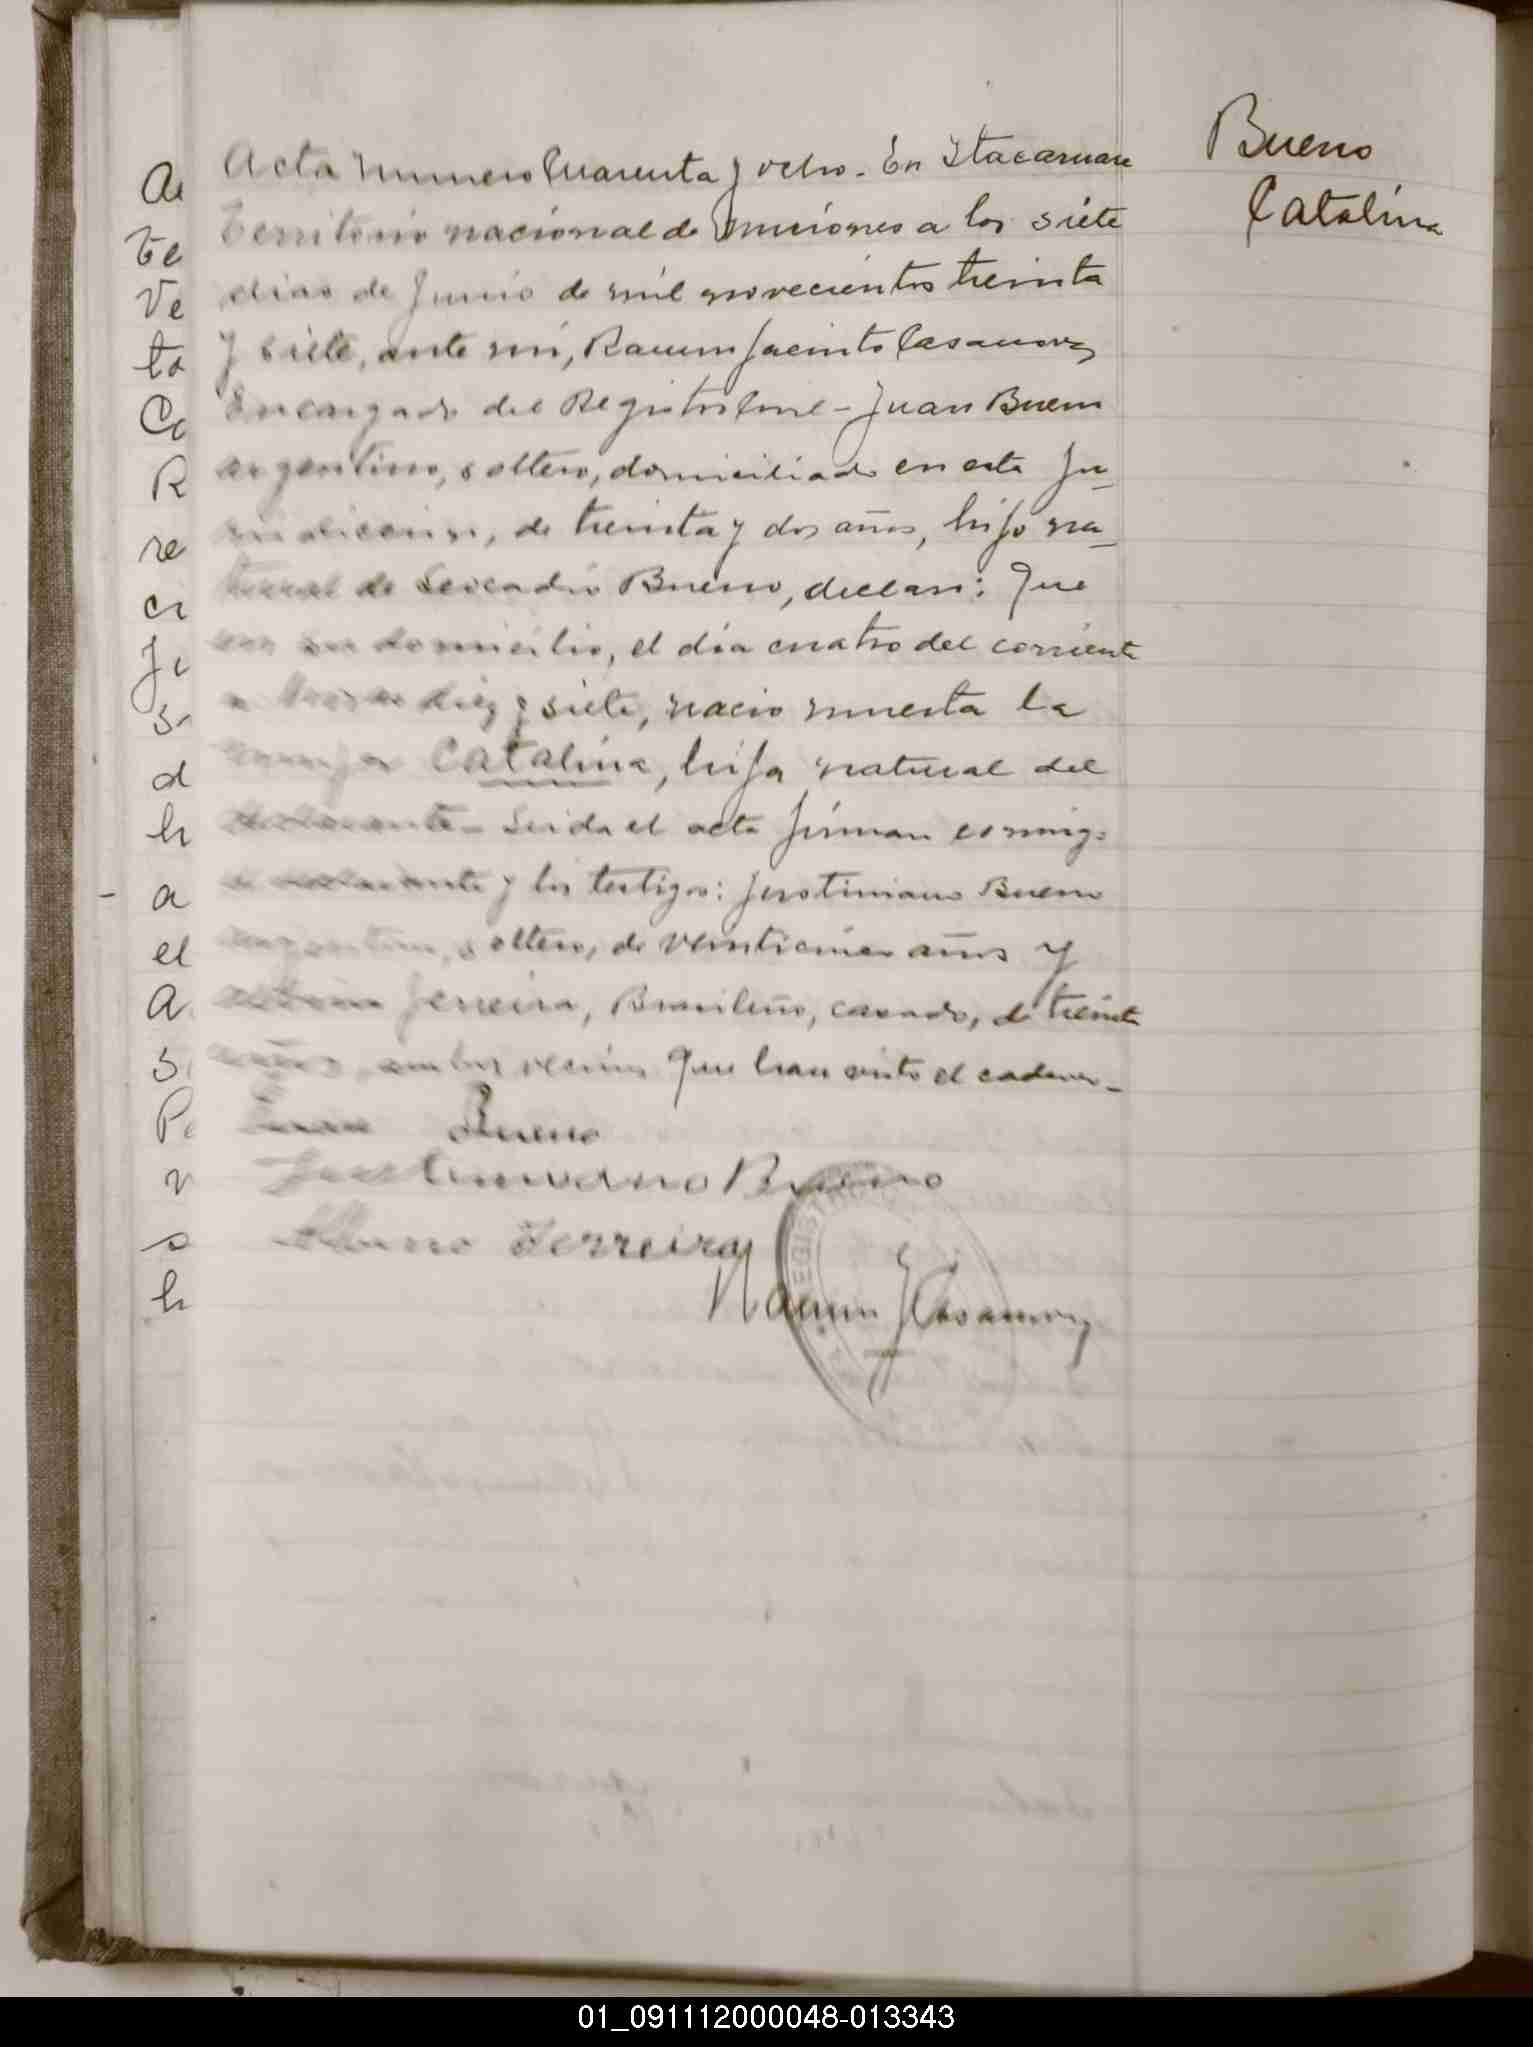 Bueno
Catalina
Acta numero Cuarenta y ocho. En Itacaruare
Territorio nacional de misiones a los siete
dias de Junio de mil novecientos treinta
y siete, ante mi, Ramon Jacinto Casanova
Encargado del Registro Civil - Juan Bueno
argentino, soltero, domiciliado en esta Ju-
risdiccion, de treinta y dos años, hijo na-
tural de Leocadio Bueno, declaró: Que
en su domicilio, el día cuatro del corriente
a horas diez y siete, nacio muerta la
mujer Catalina, hija natural del
declarante - Leida el acta firman conmigo
el declarante y los testigos: Justiniano Bueno
argentino, soltero, de veinticinco años y
Ferreira, Brasileño, casado, de treinta
años, ambos vecinos que han visto el cadaver -
Juan Bueno
Justiniano Bueno
Ferreira
Ramon J Casanova
REGISTRO
Ac
Te
Ve
to
Ca
R
re
ci
Ju
s
d
h
a
el
A
s
Pe
v
s
h
01_091112000048-013343